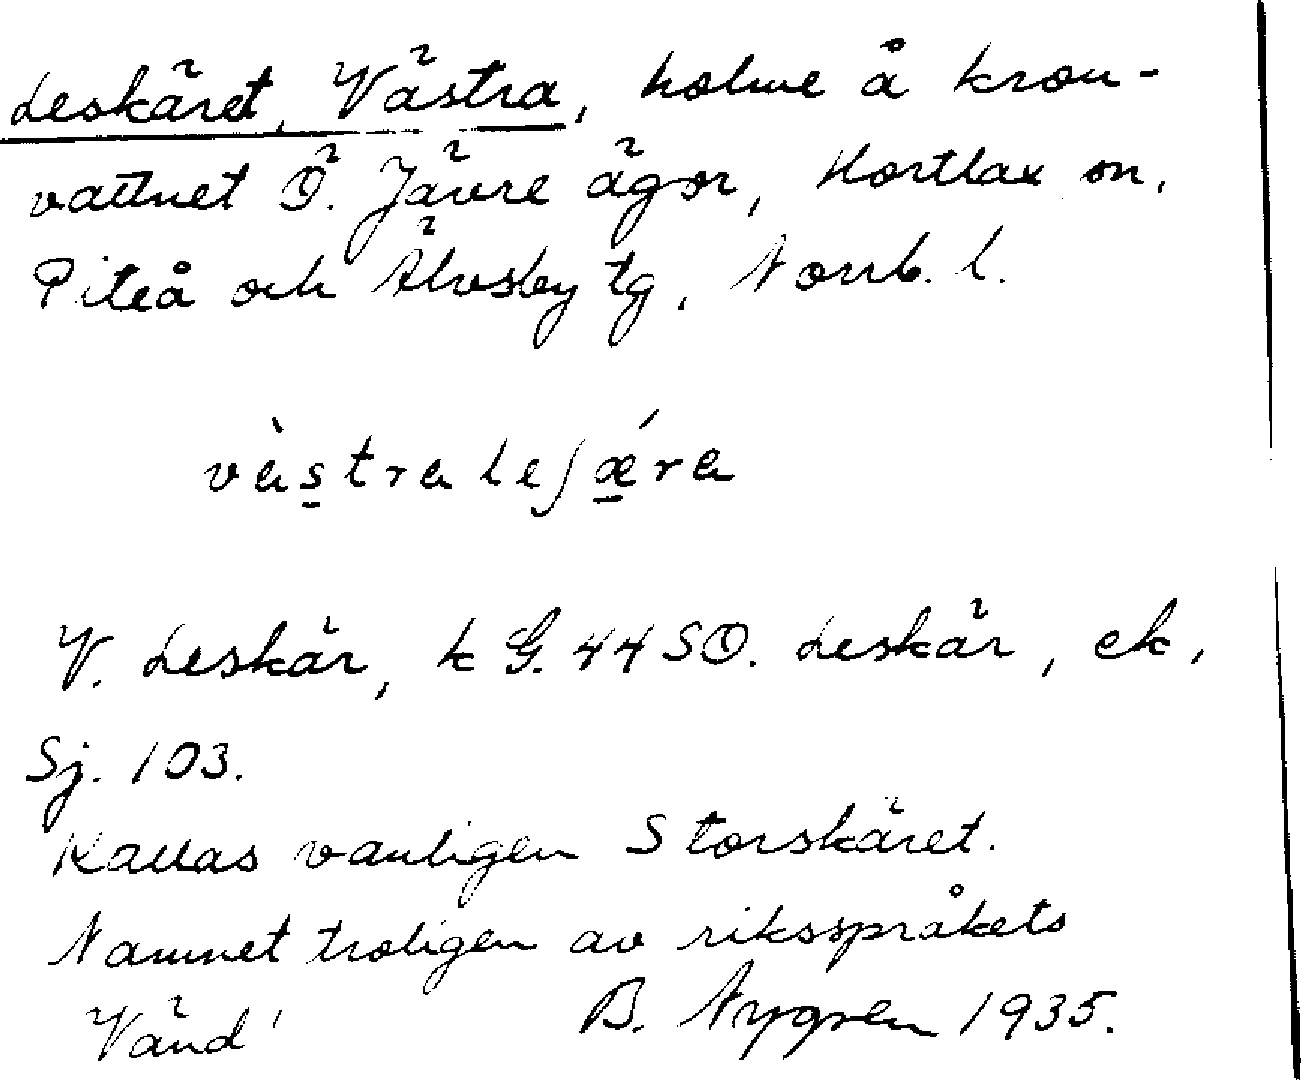 Leskäret, Västra, holme å kron-
vattnet Ö. Jävre ägor, Hortlax sn,
Piteå och Älvsby tg, Norrb. l.
vàstra leʃǽra
V. Leskär, k G. 44 SO. Leskär, ek,
Sj. 103.
Kallas vanligen Storskäret.
Namnet troligen av riksspråkets
Vänd! B. Nygren 1935.